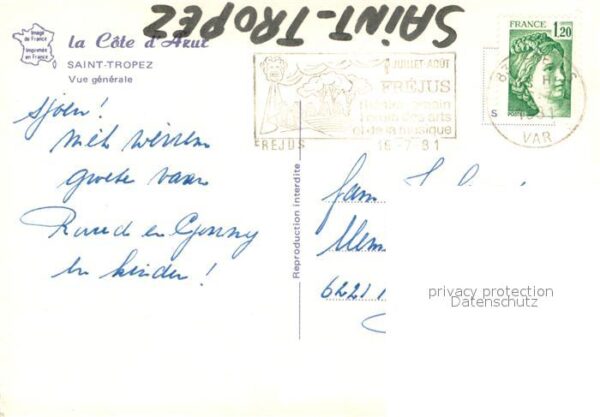 SAINT-TROPEZ
Image de France
Imprimée en France
la Côte d'Azur
SAINT-TROPEZ
Vue générale
JUILLET-AOÛT
FRÉJUS
forum des arts
et de la musique
FREJUS
16-7 81
FRANCE
1,20
VAR
S
Reproduction interdite
sjoen!
met
groete van
Ruud en Conny
en kinder!
fam
6221
privacy protection
Datenschutz